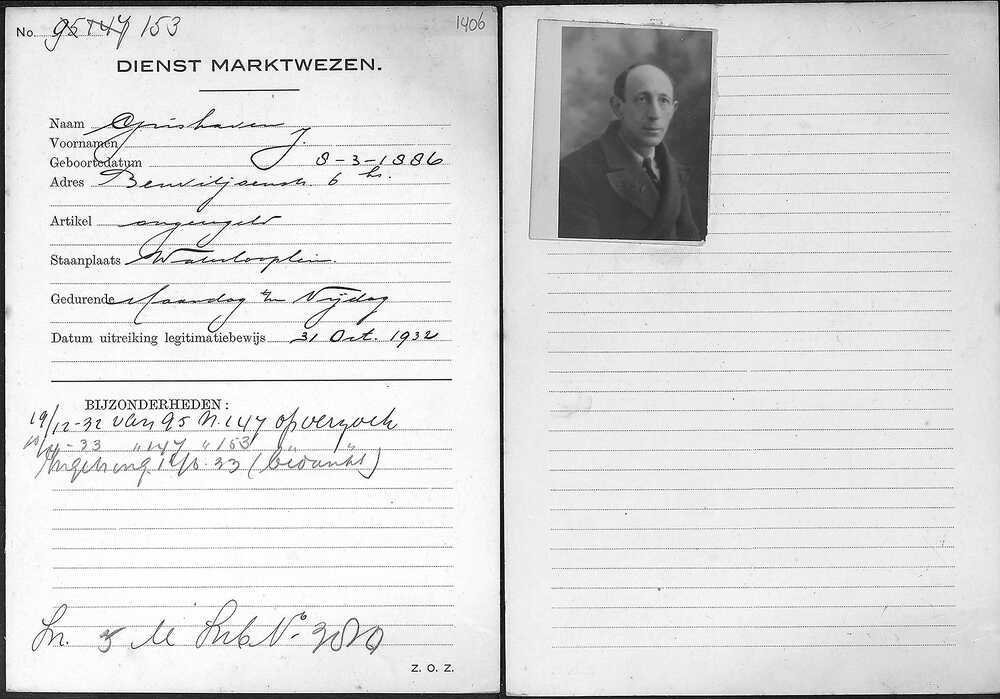 No. 95 147 153
1406
DIENST MARKTWEZEN.
Naam
Voornamen J.
Geboortedatum 8-3-1886
Adres 6 hs.
Artikel ongeregeld
Staanplaats Waterlooplein.
Gedurende Maandag t/m Vrijdag
Datum uitreiking legitimatiebewijs 31 Oct. 1932
BIJZONDERHEDEN:
19/12-32 van 95 N. 147 op verzoek
-33 " 147 " 153
33 (bedankt)
Z. O. Z.